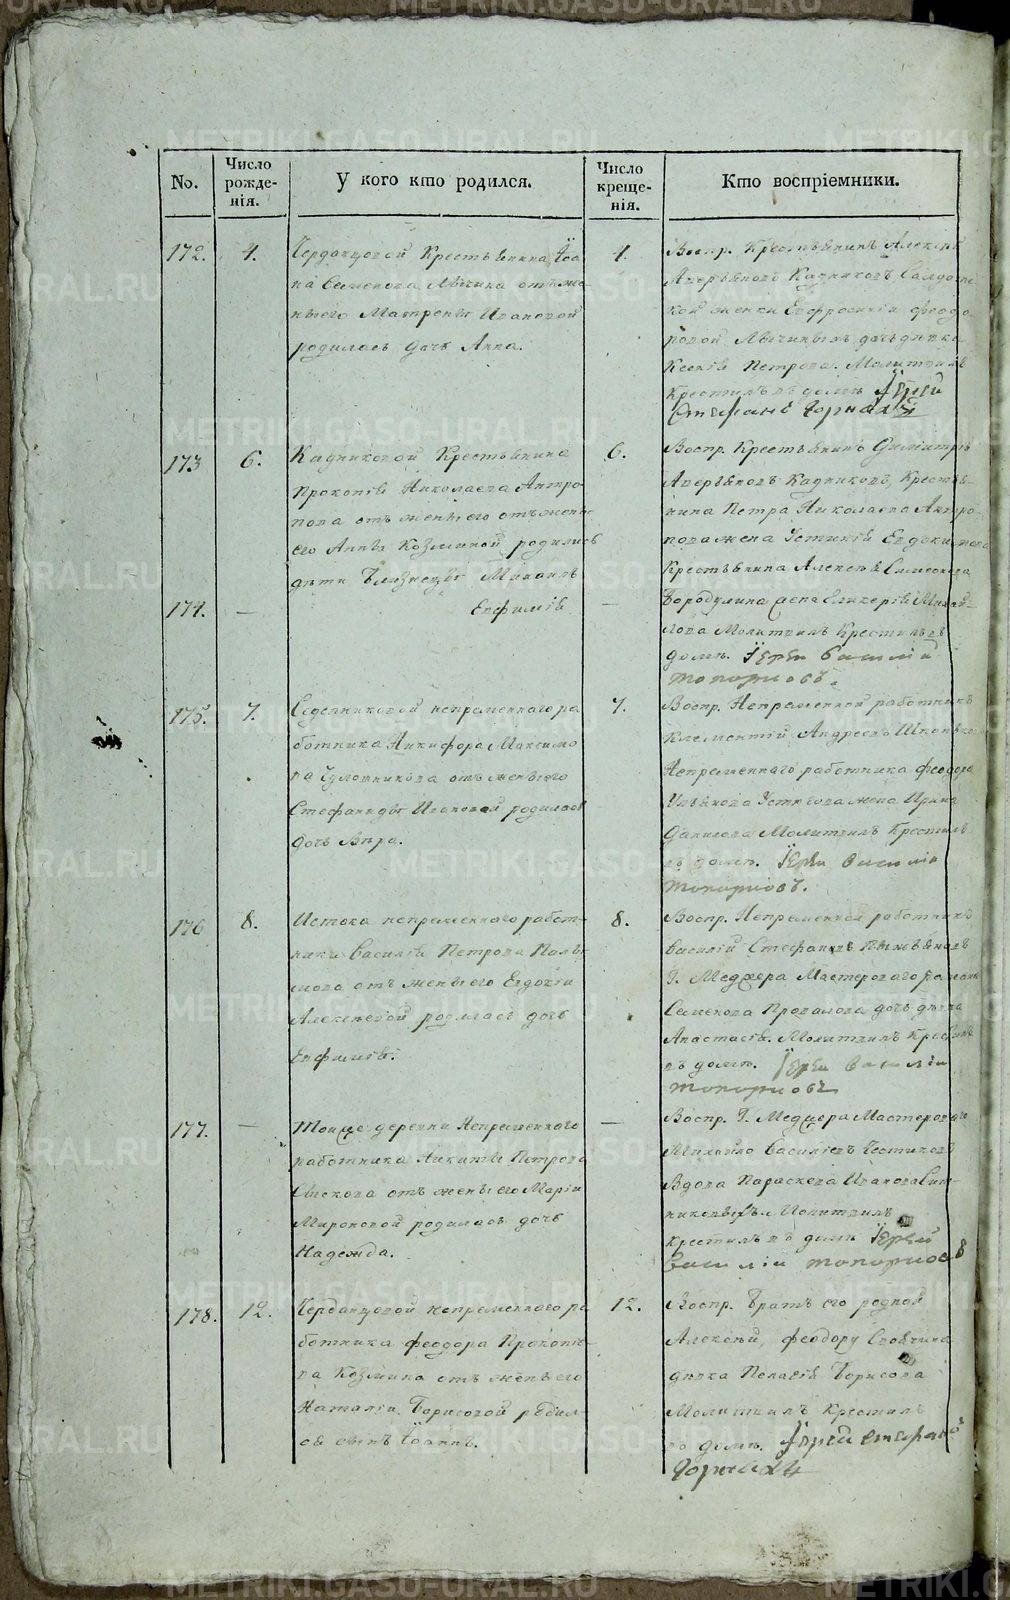 No.
Число рожде-нія.
У кого кто родился.
Число креще-нія.
Кто воспріемники.
172.
4.
Черданцовой Крестьянина Іоа
на Семенова Лячина отъ же
ны его Матрены Ивановой
родилась дочь Анна.
4.
Воспр. Крестьянинъ Алексѣй
Аверьяновъ Кадниковъ Салдатс
кой женки Евфросиніи Феодо
ровой дочь дѣвка
Ксенія Петрова. Молитвилъ
Крестилъ въ домѣ Іерей
Стефанъ Горныхъ
173
6.
Кадниковой Крестьянина
Прокопія Николаева Антро
пова отъ жены его отъ жены
его Анны Козминой родились
дѣти близнецы Михаилъ
6.
Воспр. Крестьянинъ Димитрій
Аверьяновъ Кадниковъ, Кресть
нина Петра Николаева Антро-
пова жена Устинія Евдокимова
Крестьянина Алексѣя Симеонова
174.
—
Евфимія
—
Бородулина жена Гликерія Михай-
лова Молитвилъ Крестилъ въ
домѣ. Іерей Василій
Топорковъ.
175.
7.
Седельниковой непременнаго ра
ботника Никифора Максимо
ва отъ жены его
Стефаниды Ивановой родилась
дочь Вѣра.
7.
Воспр. Непременной работникъ
Климентій Андреевъ
Непременнаго работника Феодора
жена Ирина
Данилова Молитвилъ Крестилъ
въ домѣ. Іерей Василій
Топорковъ.
176
8.
Истока непременнаго работ-
ника Василія Петрова
отъ жены его Евдокіи
Алексѣевой родилась дочь
Евфимія.
8.
Воспр. Непременной работникъ
Василій Стефановъ
Г. Меджера Мастероваго
Семенова дочь дѣвка
Анастасія. Молитвилъ Крестилъ
въ домѣ. Іерей Василій
Топорковъ
177.
—
Тоиже деревни Непременнаго
работника Никиты Петрова
отъ жены его Маріи
Мироновой родилась дочь
Надежда.
—
Воспр. Г. Меджера Мастеровой
Михайло Васильевъ
Вдова Параскева Иванова
Молитвилъ
Крестилъ въ домѣ Іерей
Василій Топорковъ
178.
12.
Черданцовой непременнаго ра
ботника Феодора Прокопь
ва Козмина отъ жены его
Наталіи Борисовой родил-
ся сынъ Іоаннъ.
12.
Воспр. Братъ его родной
Алексѣй, Феодору
дѣвка Пелагія Борисова
Молитвилъ Крестилъ
въ домѣ. Іерей Стефанъ
Горныхъ
METRIKI.GASO-URAL.RU